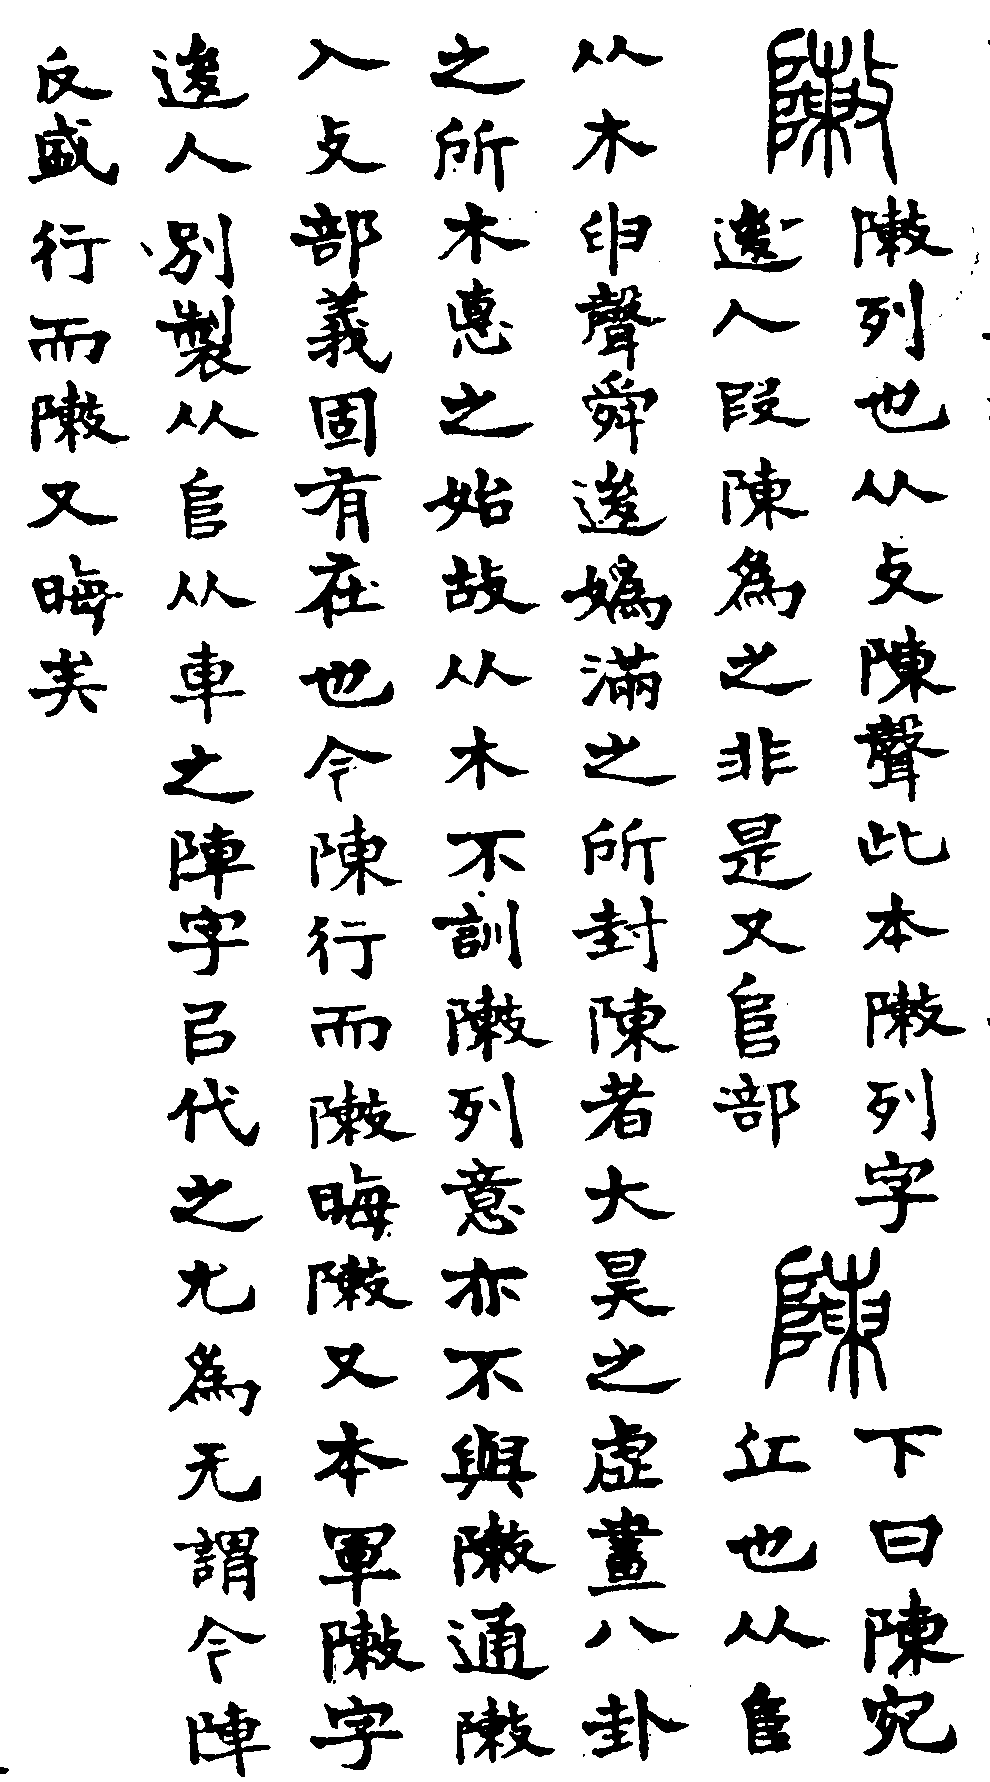 敶
敶列也从攴陳聲此本敶列字
後人叚陳為之非是又𨸏部
陳
下曰陳宛
丘也从𨸏
从木申聲舜後媯滿之所封陳者大昊之虛畫八卦
之所木悳之始故从木不訓敶列意亦不與敶通敶
入攴部義固有在也今陳行而敶晦敶又本軍敶字
後人別製从𨸏从車之陣字㠯代之尤為无謂今陣
反盛行而敶又晦矣